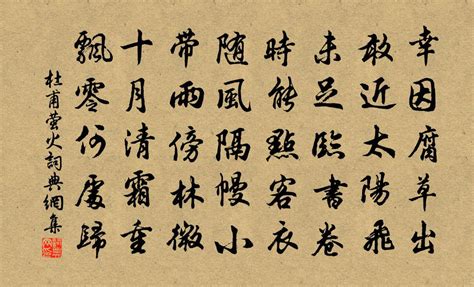 幸因腐草出
敢近太陽飛
未足臨書卷
時能點客衣
随風隔幔小
帶雨傍林微
十月清霜重
飄零何處歸
杜甫萤火詞典網集